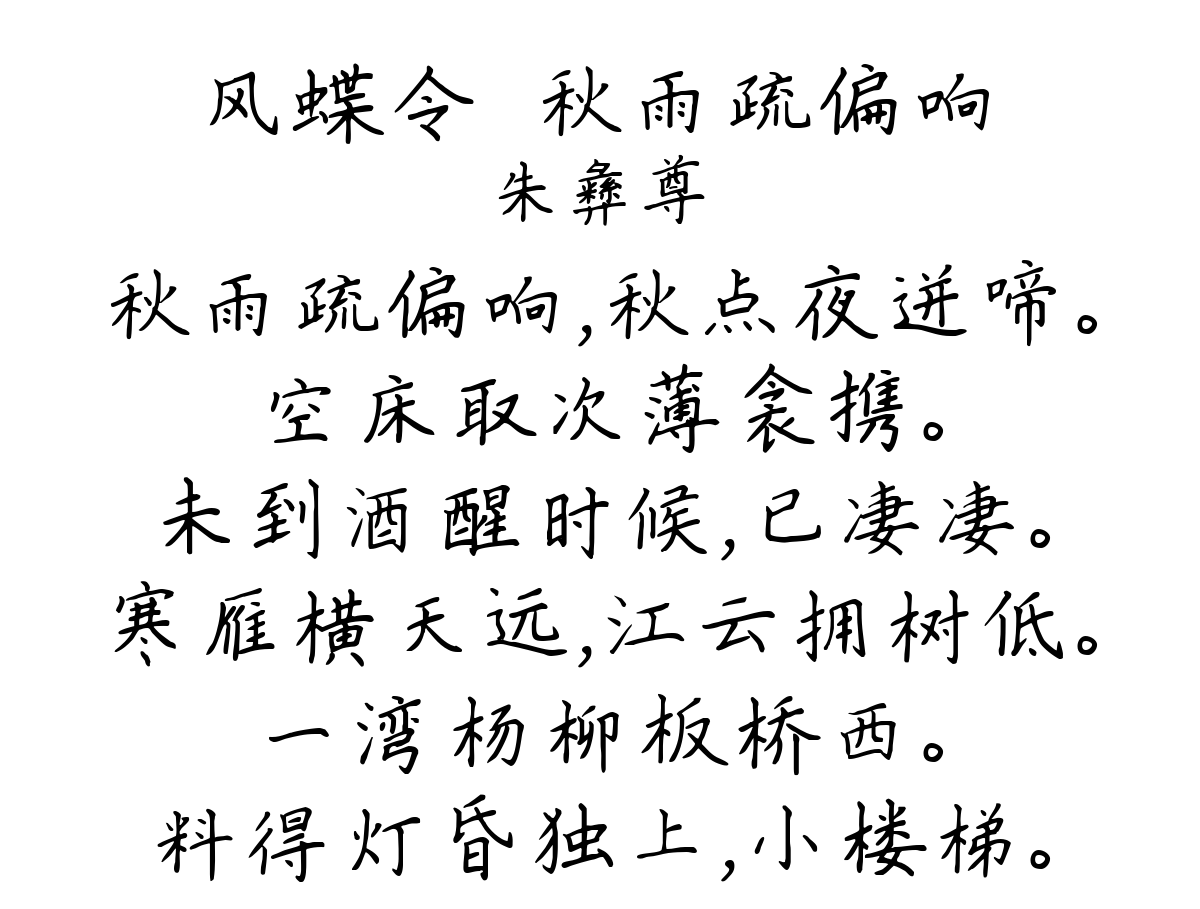 风蝶令 秋雨疏偏响
朱彝尊
秋雨疏偏响,秋点夜迸啼。
空床取次薄衾携。
未到酒醒时候,已凄凄。
寒雁横天远,江云拥树低。
一湾杨柳板桥西。
料得灯昏独上,小楼梯。